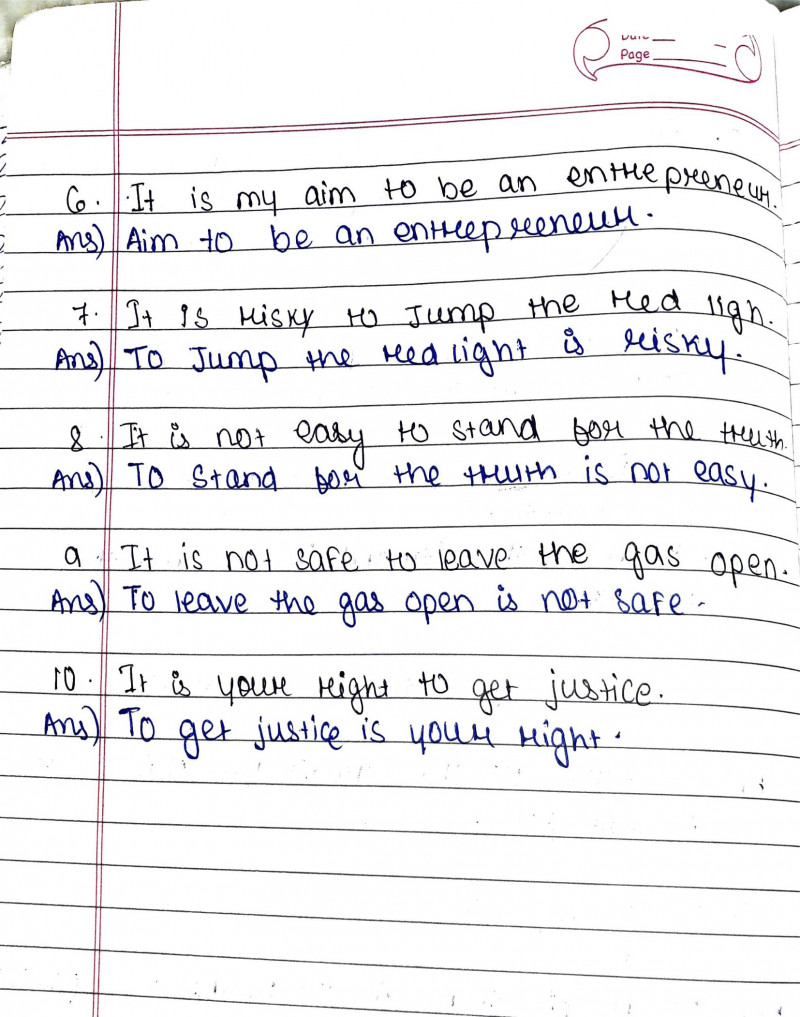 Page
6. It is my aim to be an entrepreneur.
Ans) Aim to be an entrepreneur.
7. It is risky to Jump the red ligh.
Ans) To Jump the red light is risky.
8. It is not easy to stand for the truth.
Ans) To stand for the truth is not easy.
9. It is not safe to leave the gas open.
Ans) To leave the gas open is not safe.
10. It is your right to get justice.
Ans) To get justice is your right.